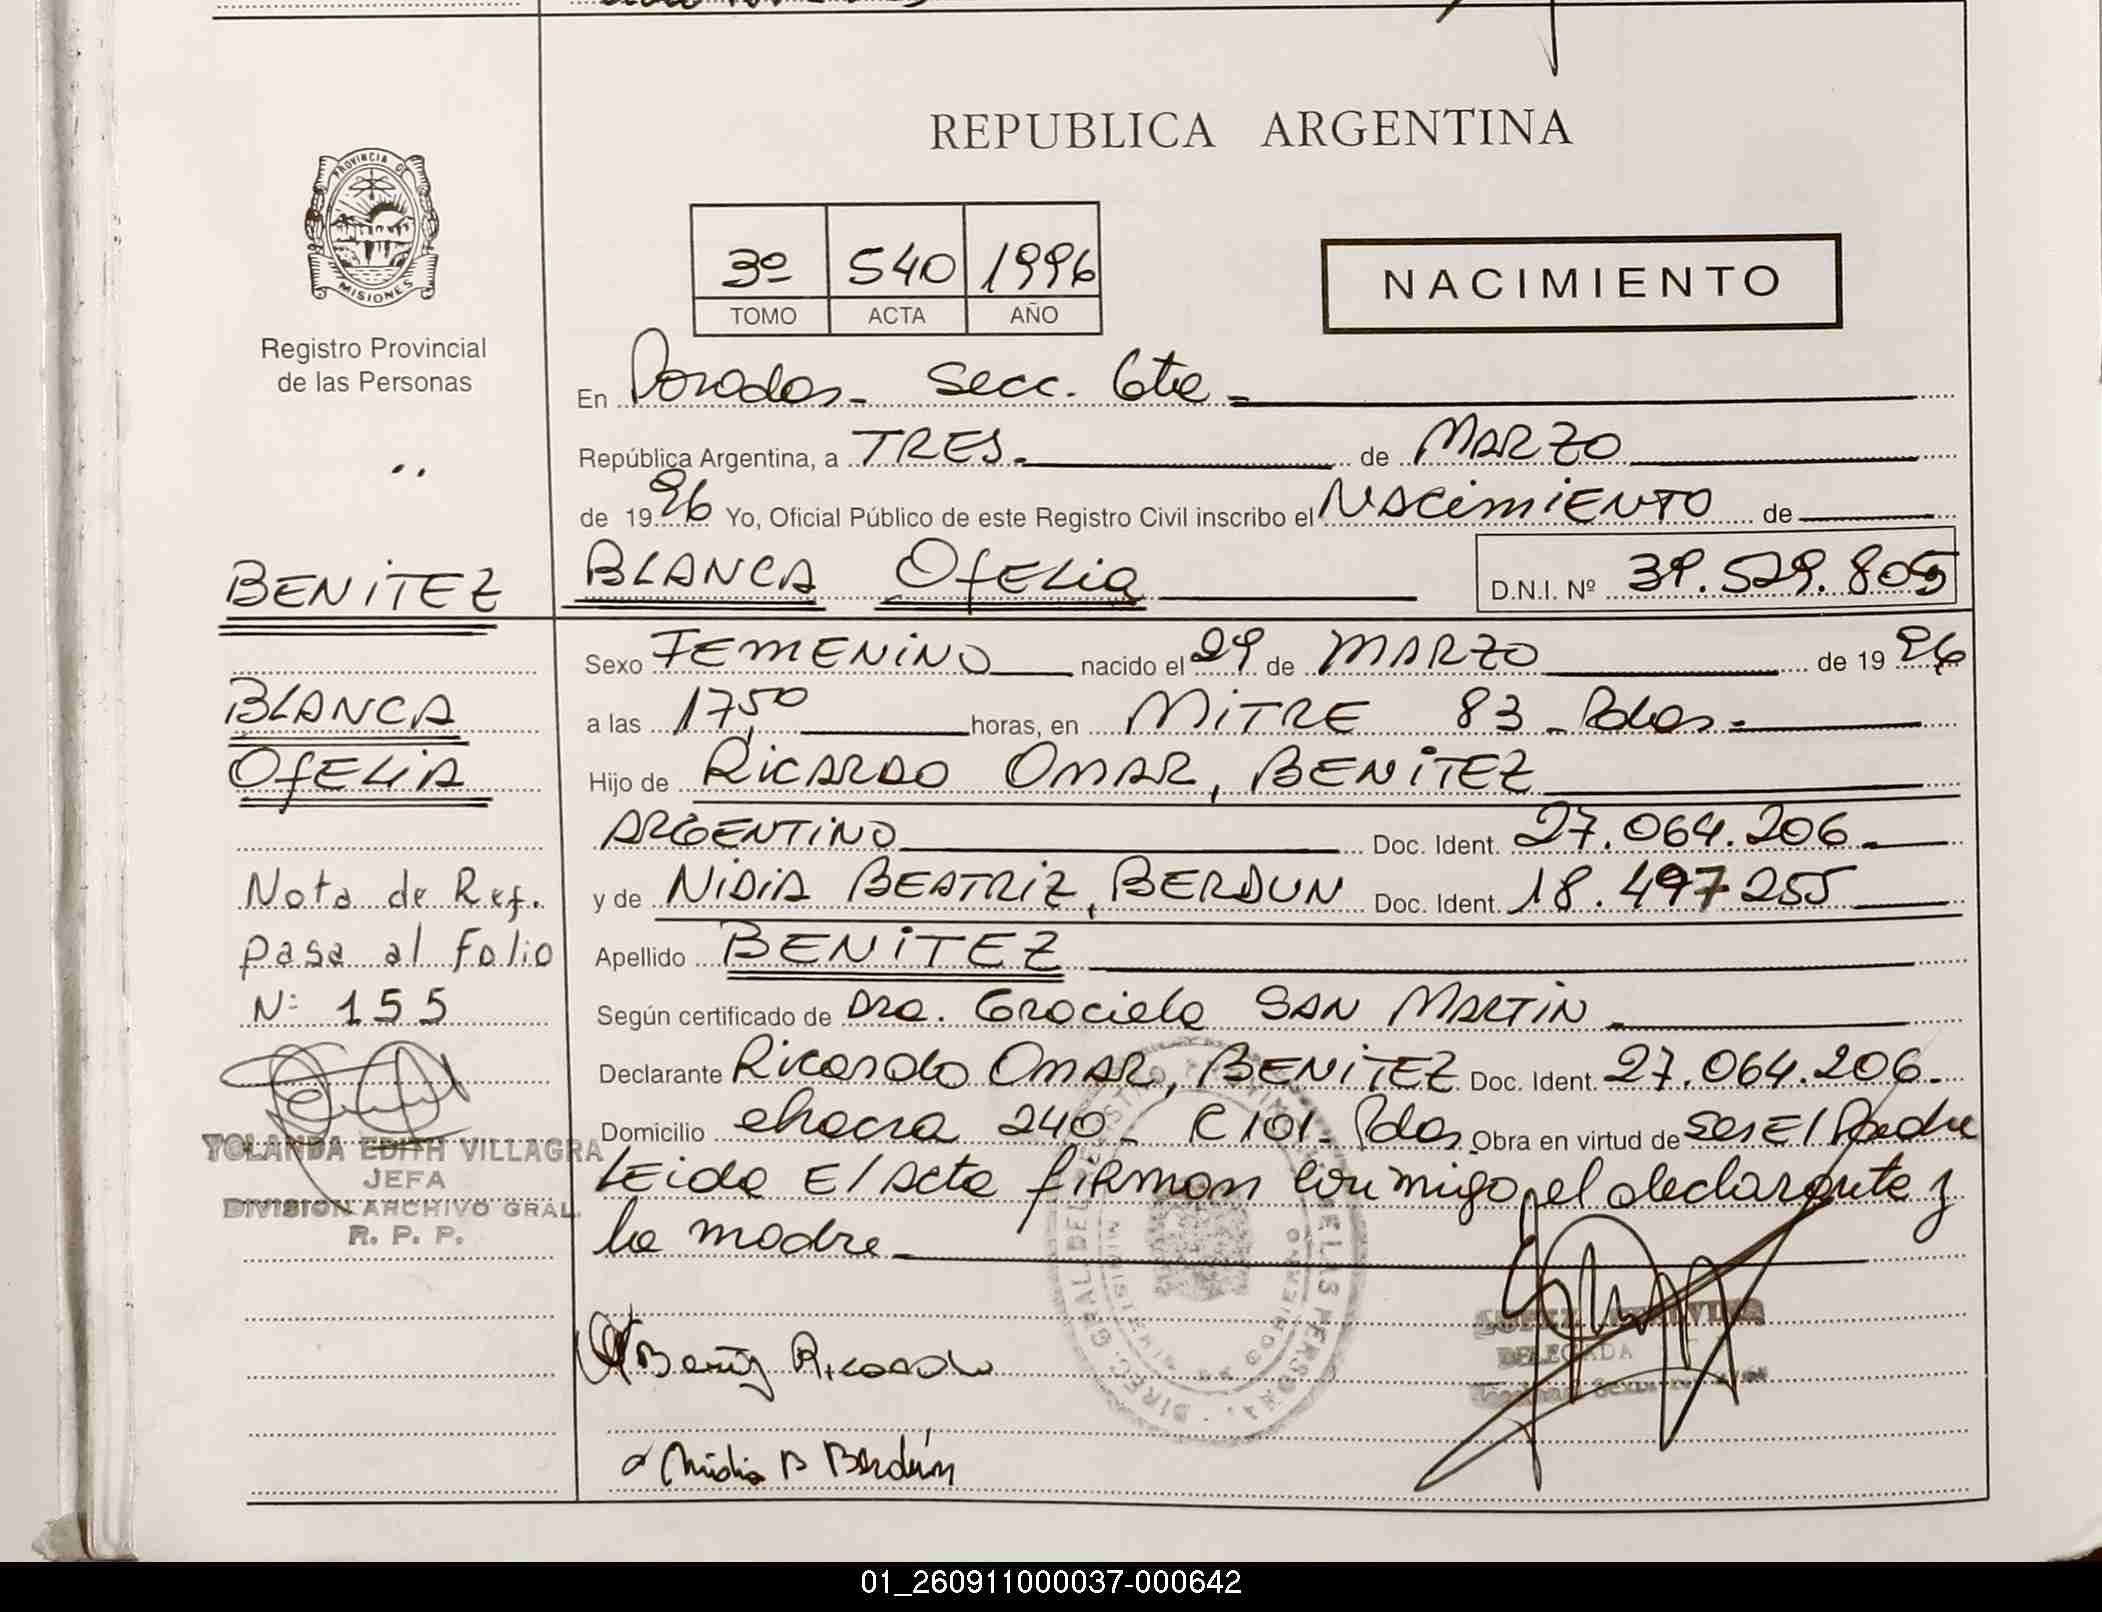 REPUBLICA ARGENTINA
PROVINCIA DE
MISIONES
Registro Provincial
de las Personas
3º 540 1996
TOMO ACTA AÑO
NACIMIENTO
En Posadas - Secc. 6ta
República Argentina, a TRES de MARZO
de 1996 Yo, Oficial Público de este Registro Civil inscribo el NACIMIENTO de
BENITEZ
BLANCA OFELIA D.N.I. Nº 39.529.805
Sexo FEMENINO nacido el 29 de MARZO de 1996
BLANCA
a las 1750 horas, en MITRE 83 - Pdas -
OFELIA
Hijo de RICARDO OMAR, BENITEZ
ARGENTINO Doc. Ident. 27.064.206
Nota de Ref.
y de NIDIA BEATRIZ, BERDUN Doc. Ident. 18.497255
pasa al Folio
Apellido BENITEZ
N: 155
Según certificado de Dra. Graciela SAN MARTIN
Declarante Ricardo OMAR, BENITEZ Doc. Ident. 27.064.206
Domicilio chacra 240 - C 101 - Pdas Obra en virtud de ser El Padre
YOLANDA EDITH VILLAGRA
JEFA
DIVISION ARCHIVO GRAL.
R. P. P.
Leida El Acta firman conmigo, el declarante y
la madre
Ricardo
Nidia B Berdún
DELEGADA
01_260911000037-000642